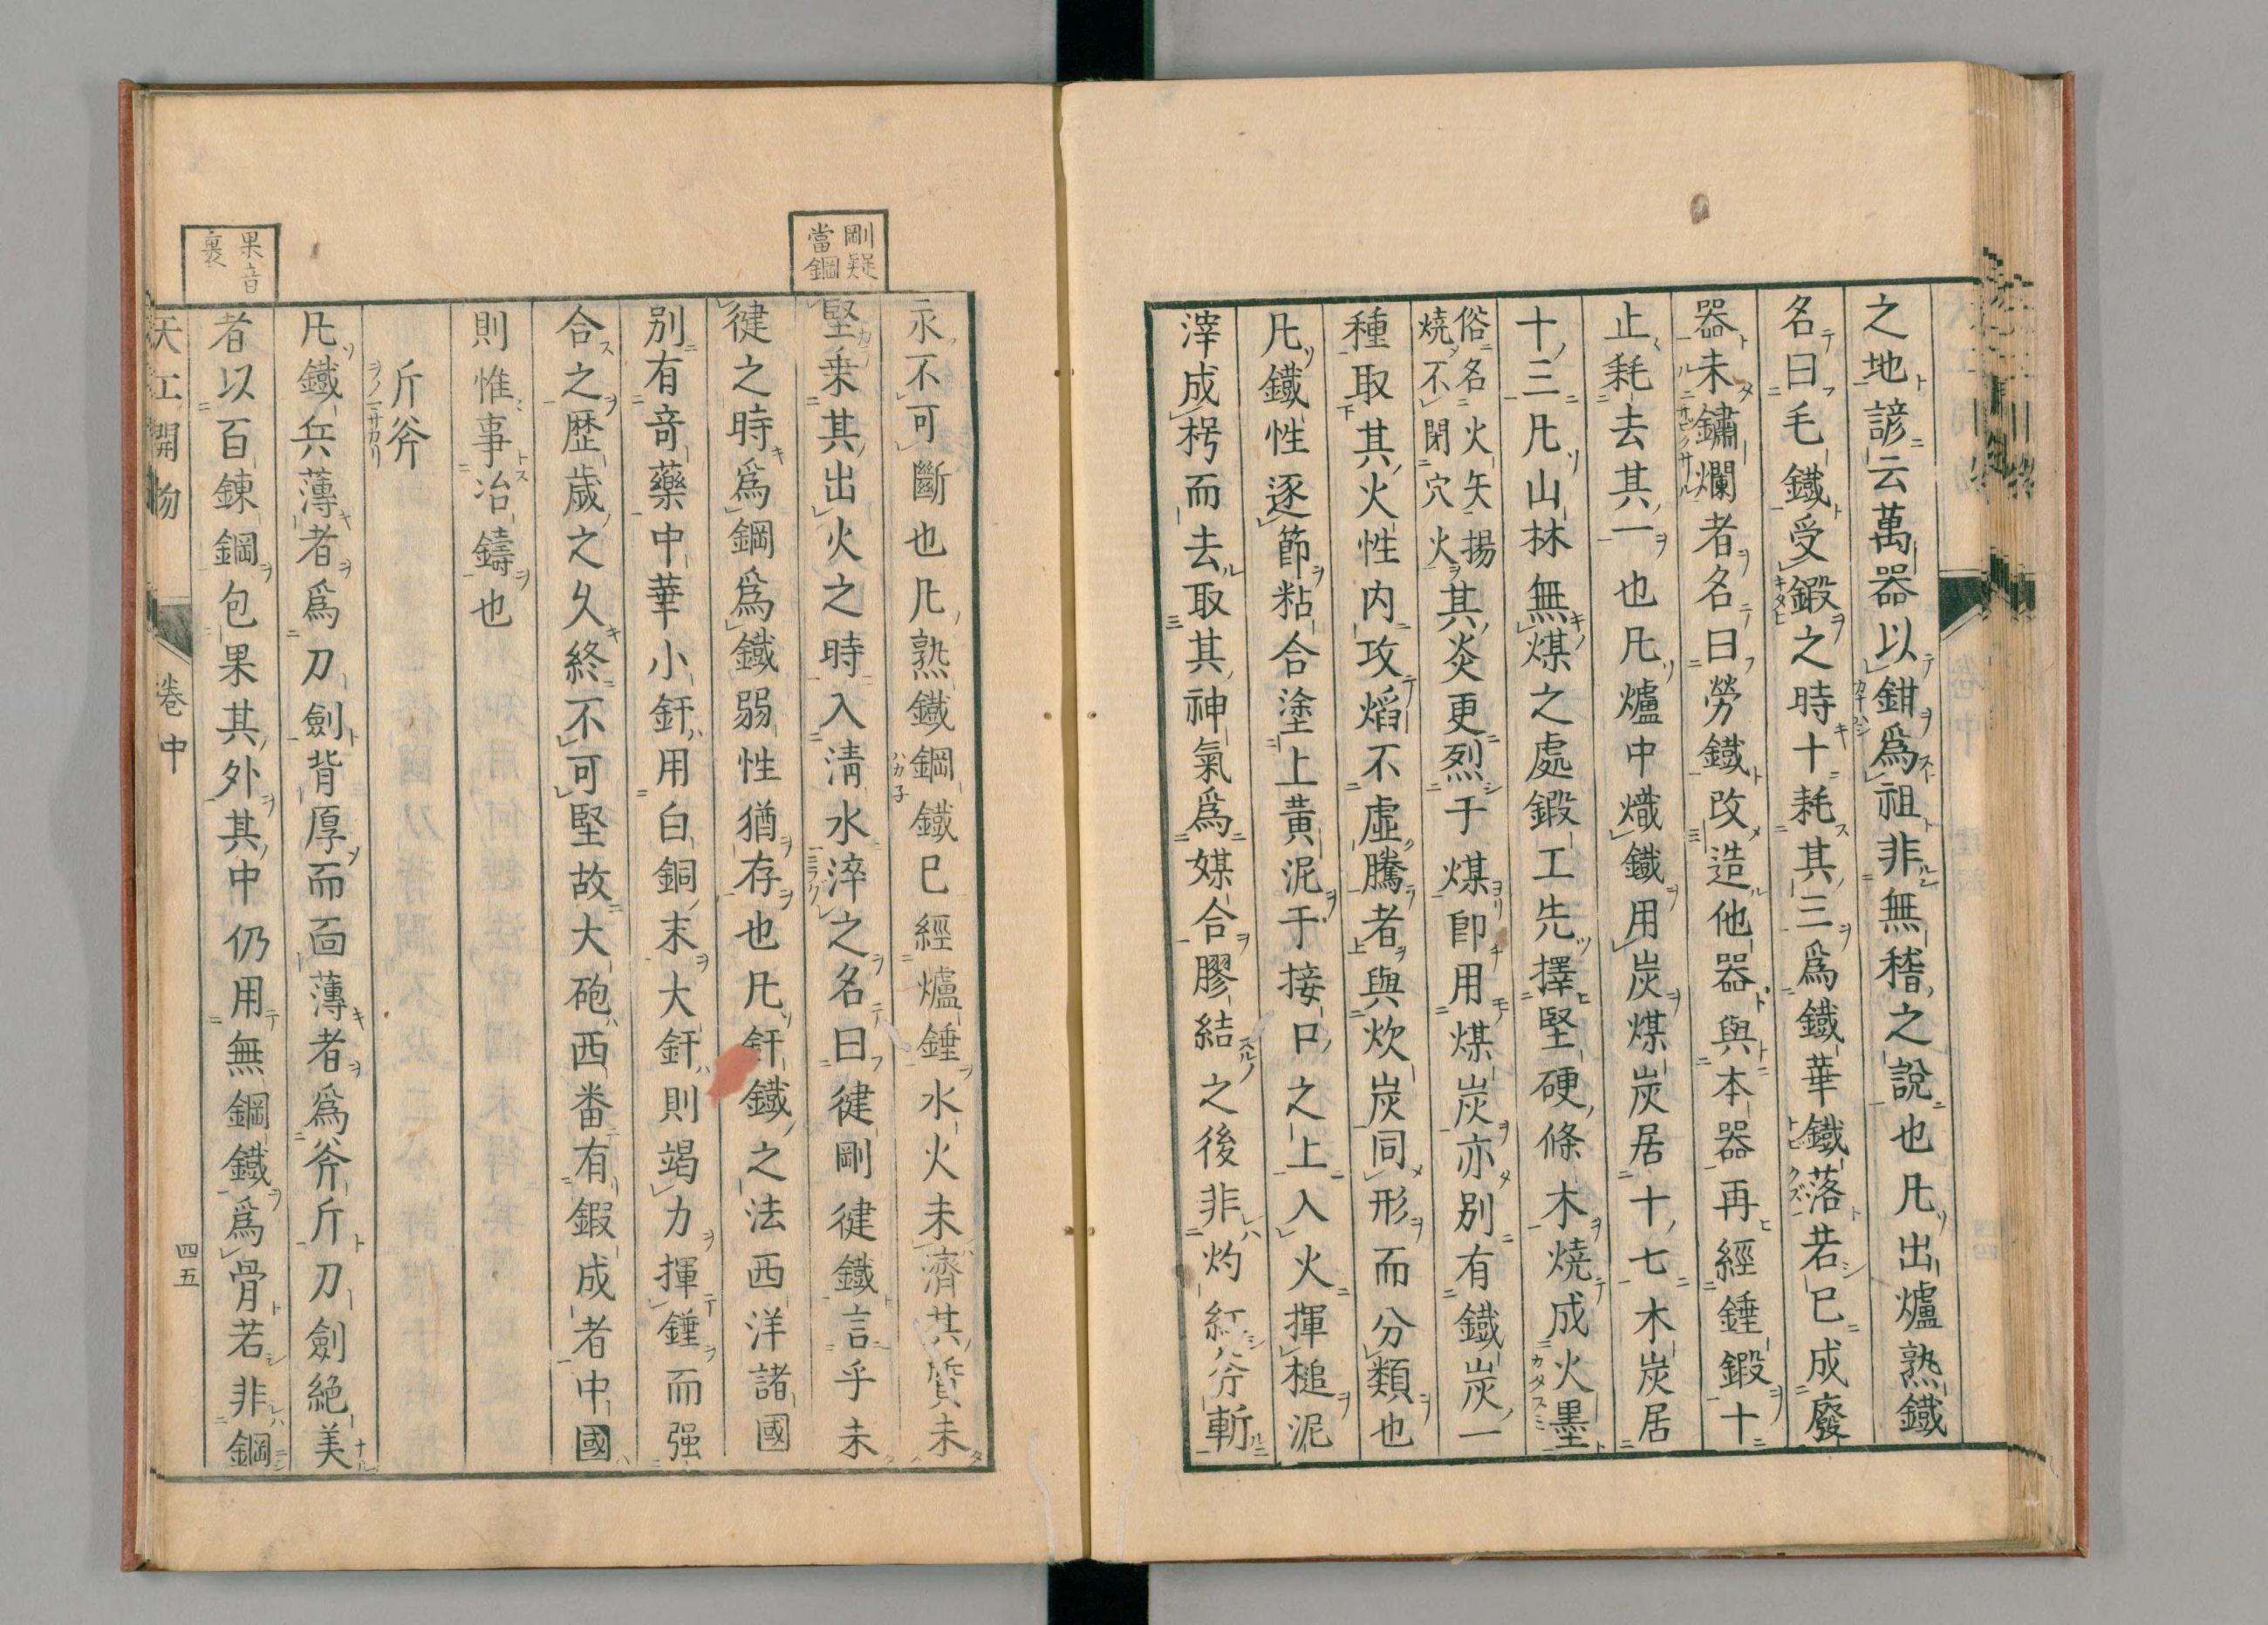 之地諺云萬器以鉗爲祖非無稽之說也凡出爐熟鐵
名曰毛鐵受鍛之時十耗其三爲鐵華鐵落若已成廢
器未鏽爛者名曰勞鐵改造他器與本器再經錘鍛十
止耗去其一也凡爐中熾鐵用炭煤炭居十七木炭居
十三凡山林無煤之處鍛工先擇堅硬條木燒成火墨
俗名火矢揚
燒不閉穴火
其炎更烈于煤卽用煤炭亦別有鐵炭一
種取其火性內攻焰不虛騰者與炊炭同形而分類也
凡鐵性逐節粘合塗上黃泥于接口之上入火揮槌泥
滓成枵而去取其神氣爲媒合膠結之後非灼紅斧斬
剛疑
當鋼
永不可斷也凡熟鐵鋼鐵已經爐錘水火未濟其質未
堅乗其出火之時入淸水淬之名曰健剛健鐵言乎未
健之時爲鋼爲鐵弱性猶存也凡釬鐵之法西洋諸國
別有竒藥中華小釬用白銅末大釬則竭力揮錘而强
合之歷歲之久終不可堅故大砲西番有鍜成者中國
則惟事冶鑄也
斤斧
凡鐵兵薄者爲刀劍背厚而面薄者爲斧斤刀劍絕美
果音
裹
者以百鍊鋼包果其外其中仍用無鋼鐵爲骨若非鋼
天工開物
卷中
四五